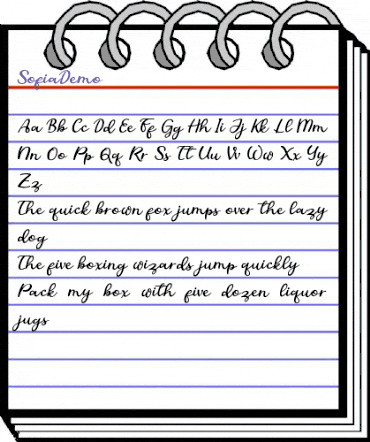 SofiaDemo
Aa Bb Cc Dd Ee Ff Gg Hh Ii Jj Kk Ll Mm
Nn Oo Pp Qq Rr Ss Tt Uu Vv Ww Xx Yy
Zz
The quick brown fox jumps over the lazy
dog
The five boxing wizards jump quickly
Pack my box with five dozen liquor
jugs